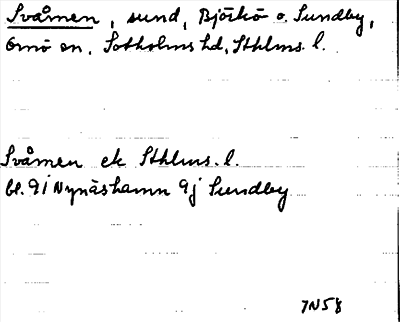 Svåmen, sund, Björkö o. Sundby,
Ornö sn, Sotholms hd, Sthlms. l.
Svåmen ek Sthlms. l.
bl. 9i Nynäshamn 9j Sundby
7N58